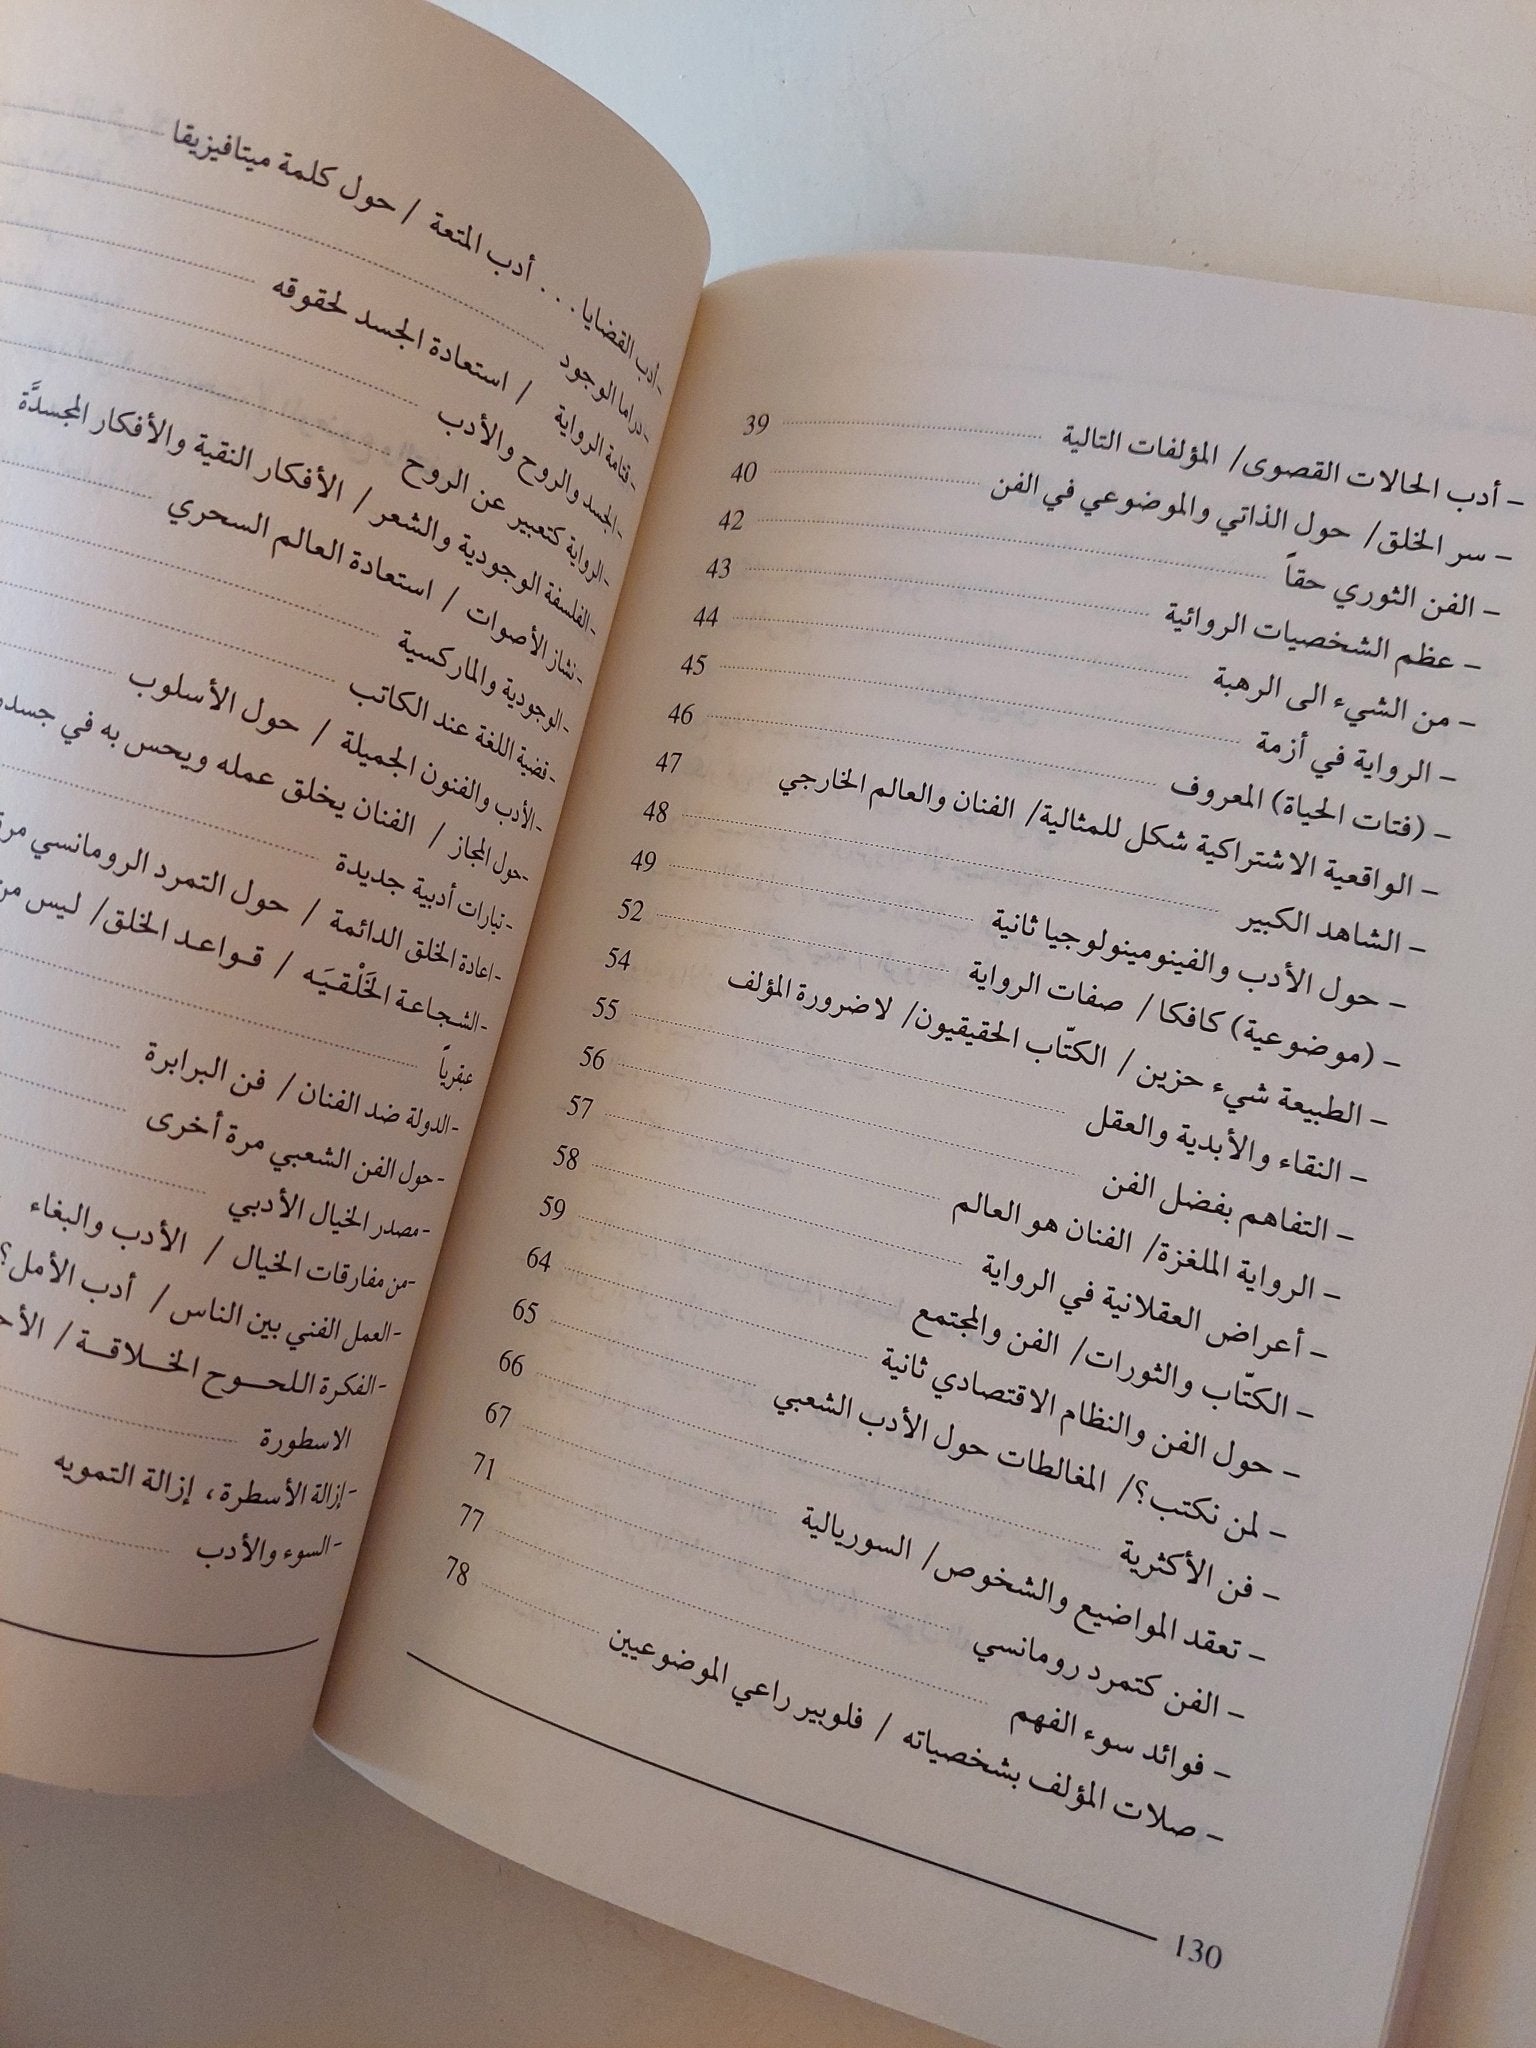 – أدب الحالات القصوى/ المؤلفات التالية 39
– سر الخلق/ حول الذاتي والموضوعي في الفن 40
– الفن الثوري حقاً 42
– عظم الشخصيات الروائية 43
– من الشيء الى الرهبة 44
– الرواية في أزمة 45
– (فتات الحياة) المعروف 46
– الواقعية الاشتراكية شكل للمثالية/ الفنان والعالم الخارجي 47
– الشاهد الكبير 48
– حول الأدب والفينومينولوجيا ثانية 49
– (موضوعية) كافكا/ صفات الرواية 52
– الطبيعة شيء حزين/ الكتّاب الحقيقيون/ لا ضرورة المؤلف 54
– النقاء والأبدية والعقل 55
– التفاهم بفضل الفن 56
– الرواية الملغزة/ الفنان هو العالم 57
– أعراض العقلانية في الرواية 58
– الكتّاب والثورات/ الفن والمجتمع 59
– حول الفن والنظام الاقتصادي ثانية 64
– لمن نكتب؟/ المغالطات حول الأدب الشعبي 65
– فن الأكثرية 66
– تعقد المواضيع والشخوص/ السوريالية 67
– الفن كتمرد رومانسي 71
– فوائد سوء الفهم 77
– صلات المؤلف بشخصياته / فلوبير راعي الموضوعيين 78
130
-أدب القضايا... أدب المتعة / حول كلمة ميتافيزيقا
-دراما الوجود
-قتامة الرواية / استعادة الجسد لحقوقه
-الجسد والروح والأدب
-الرواية كتعبير عن الروح
-الفلسفة الوجودية والشعر / الأفكار النقية والأفكار المجسدَّة
-نشاز الأصوات / استعادة العالم السحري
-الوجودية والماركسية
-قضية اللغة عند الكاتب
-الأدب والفنون الجميلة / حول الأسلوب
-حول المجاز / الفنان يخلق عمله ويحس به في جسده
-تيارات أدبية جديدة
-اعادة الخلق الدائمة / حول التمرد الرومانسي مرة
-الشجاعة الخَلْقيَه / قواعد الخلق/ ليس من
عبقرياً
-الدولة ضد الفنان / فن البرابرة
-حول الفن الشعبي مرة أخرى
-مصدر الخيال الأدبي
-من مفارقات الخيال / الأدب والبغاء
-العمل الفني بين الناس / أدب الأمل؟
-الفكرة اللحوح الخلاقة /
الاسطورة
-إزالة الأسطرة، إزالة التمويه
-السوء والأدب